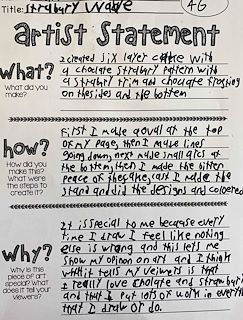 Title: Strabury Wave
4G
artist Statement
What?
What did you
make?
I created six layer cake with
a choclate strabury pattern with
a strabury trim and choclate frosting
on the sides and the bottem
how?
How did you
make this?
What were
the steps to
create it?
First I made a oval at the top
of my page, then I made lines
going down, next made small arcs at
the bottem, then I made the bitten
peice of the cake, last I made the
stand and did the designs and colored
Why?
Why is this
piece of art
special? What
does it tell your
viewers?
It is special to me because every
time I draw I feel like nothing
else is wrong and this lets me
show my opinon on art and I think
what it tells my veiwers is that
I really love cholate and strabury
and that I put lots of work in every
that I draw or do.